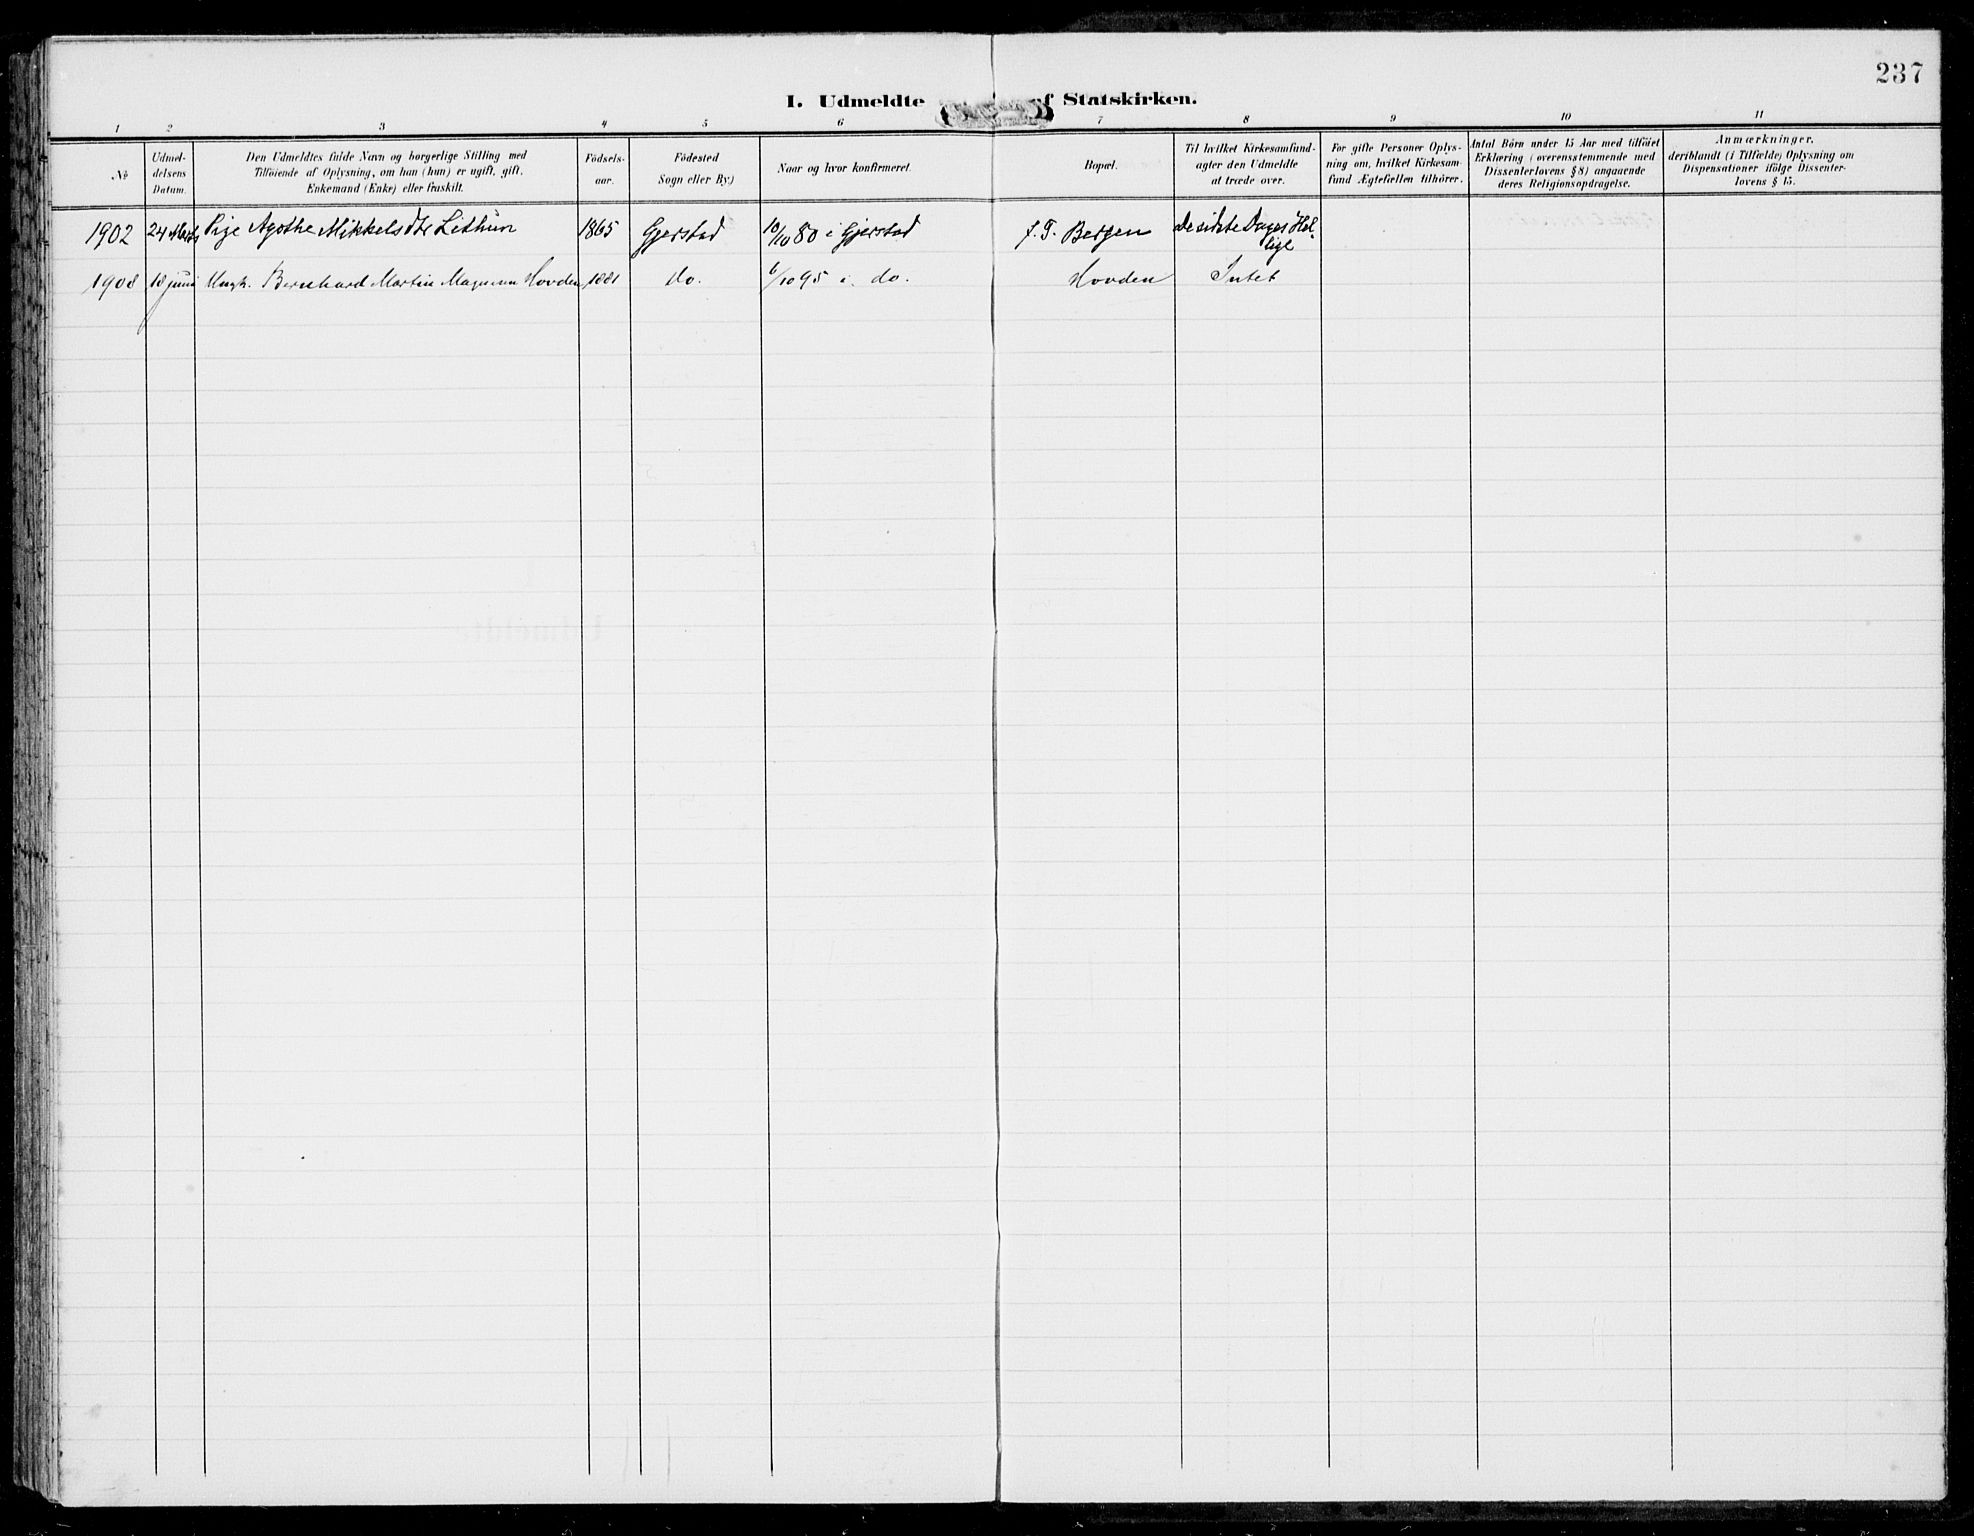 237
I. Udmeldte af Statskirken.
1 2 3 4 5 6 7 8 9 10 11
No
Udmel-
delsens
Datum.
Den Udmeldtes fulde Navn og borgerlige Stilling med
Tilföiende af Oplysning, om han (hun) er ugift, gift,
Enkemand (Enke) eller fraskilt.
Födsels-
aar.
Födested
Sogn eller By.)
Naar og hvor konfirmeret.
Bopæl.
Til hvilket Kirkesamfund-
agter den Udmeldte
at træde over.
For gifte Personer Oplys-
ning om, hvilket Kirkesam-
fund Ægtefællen tilhörer.
Antal Börn under 15 Aar med tilföiet
Erklæring (overensstemmende med
Dissenterlovens § 8) angaaende
deres Religionsopdragelse.
Anmærkninger,
deriblandt (i Tilfælde) Oplysning om
Dispensationer ifölge Dissenter-
lovens § 15.
1902 24 Marts Pige Agathe Mikkelsdtr Lethun 1865 Gjerstad 10/10 80 i Gjerstad f. T. Bergen De sidste Dages Hel-
lige
1908 18 juni Ungk. Bernhard Martin Magnus Hovden 1881 do. 6/10 95 i do. Hovden Intet